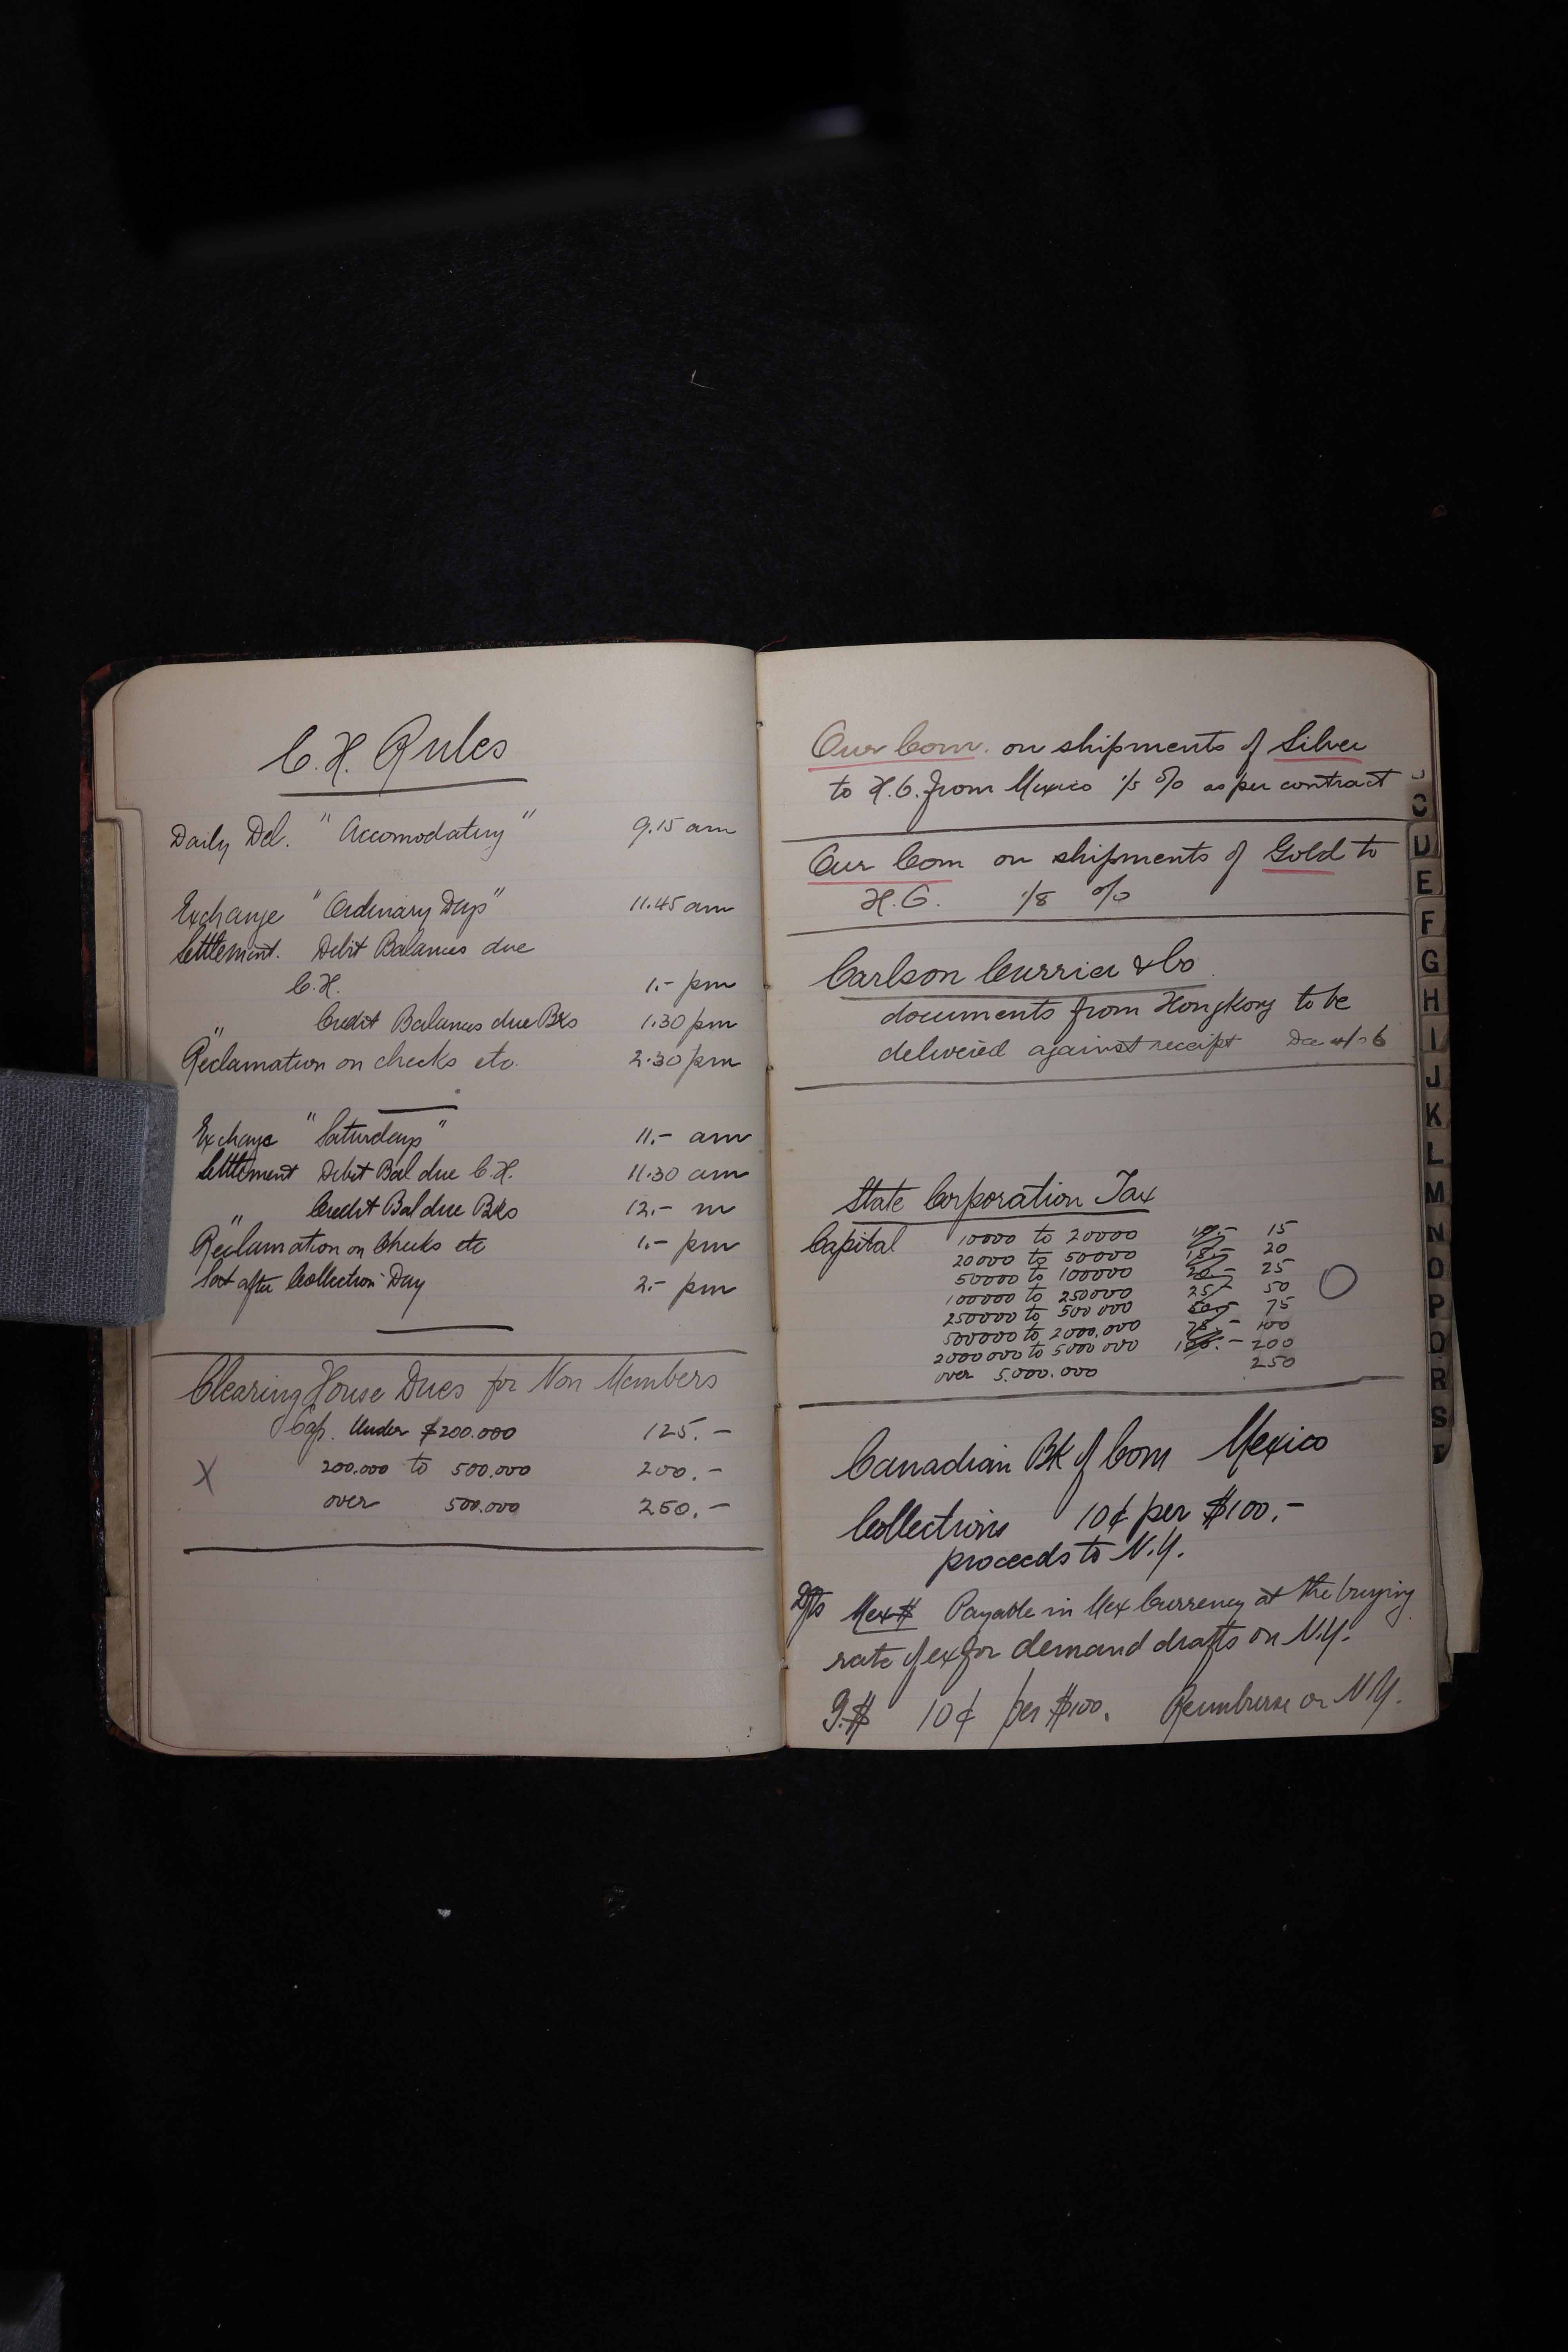 C. H. Rules
Daily Del. "Accomodatory" 9.15 am
Exchange "Ordinary Days" 11.45 am
Settlement. Debit Balances due
C.H. 1.- pm
" Credit Balances due Bks 1.30 pm
Reclamation on checks etc. 2.30 pm
Exchange "Saturdays" 11.- am
Settlement Debit Bal due C.H. 11.30 am
" Credit Bal due Bks 12.- m
Reclamation on Checks etc 1.- pm
Sat after Collection Day 2.- pm
Clearing House Dues for Non Members
Cap. Under $200.000 125.-
X 200.000 to 500.000 200.-
over 500.000 250.-
Our Com. on shipments of Silver
to H.C. from Mexico % as per contract
Our Com on shipments of Gold to
H.C. 1/8 %
Carlson Currier & Co
documents from Hongkong to be
delivered against receipt Dec
State Corporation Tax
Capital 10000 to 20000 10.- 15
20000 to 50000 15.- 20
50000 to 100000 20.- 25
100000 to 250000 25 50
250000 to 500000 50 75
500000 to 2000.000 75.- 100
2000000 to 5000000 100.- 200
over 5.000.000 250
Canadian Bk of Com Mexico
Collections 10¢ per $100.-
proceeds to N.Y.
Dfts Mex $ Payable in Mex Currency at the buying
rate of ex for demand drafts on N.Y.
G.$ 10¢ per $100. Reimburse on N.Y.
C
D
E
F
G
H
I
J
K
L
M
N
O
P
Q
R
S
T